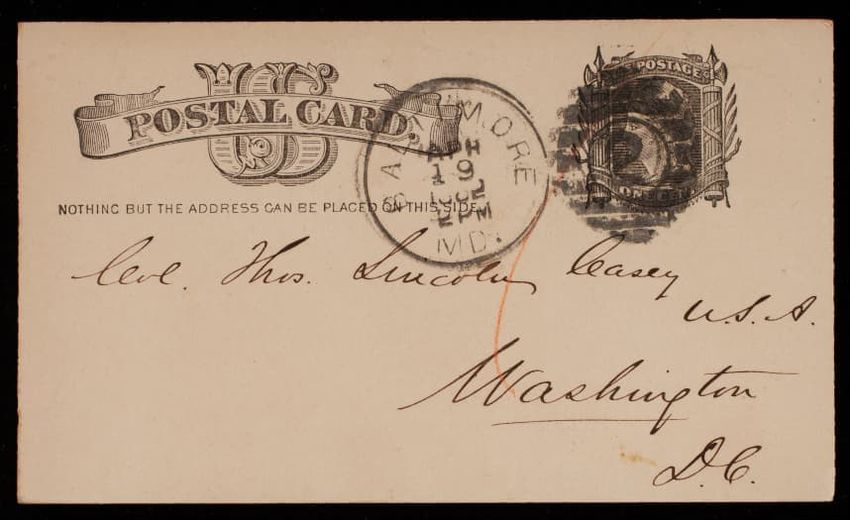 US
POSTAL CARD.
BALTIMORE
APR
19
1882
2 PM
MD.
POSTAGE
ONE CENT
NOTHING BUT THE ADDRESS CAN BE PLACED ON THIS SIDE.
Col. Thos. Lincoln Casey
U.S.A.
Washington
D.C.